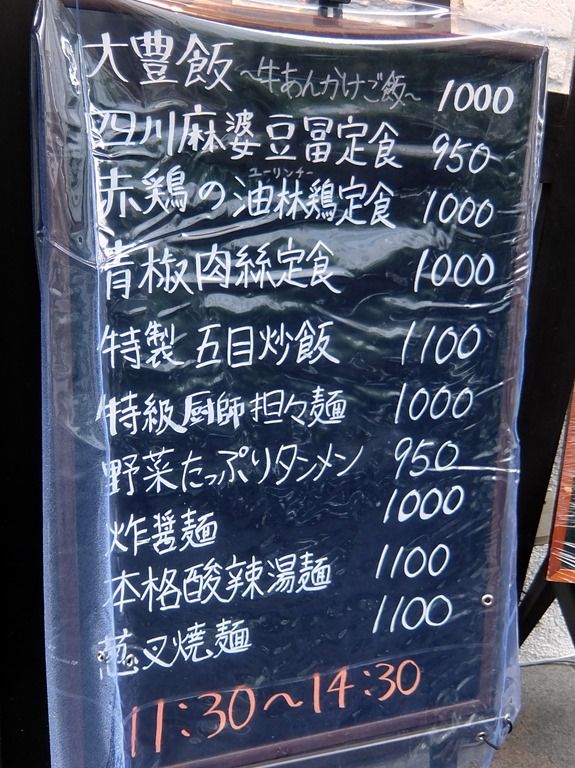 大豊飯 ～牛あんかけご飯～ 1000
四川麻婆豆冨定食 950
赤鶏の油林鶏定食 1000
ユーリンチー
青椒肉絲定食 1000
特製 五目炒飯 1100
特級厨師担々麺 1000
野菜たっぷりタンメン 950
炸醤麺 1000
本格酸辣湯麺 1100
葱叉焼麺 1100
11:30～14:30